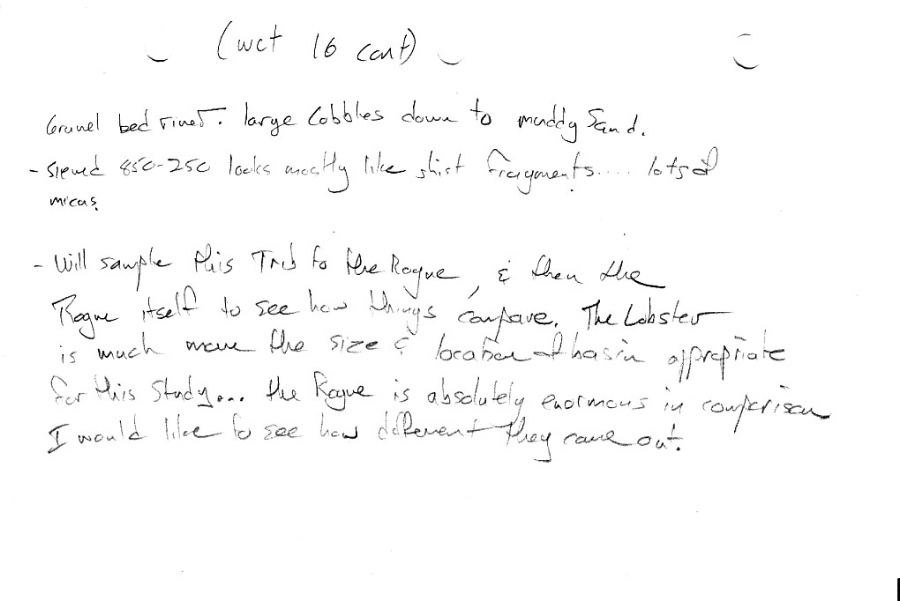 (wct 16 cont)
Gravel bed river. large Cobbles down to muddy Sand.
- sieved 850-250 looks mostly like shist fragments.... lots of
micas.
- Will sample this Trib to the Rogue, & then the
Rogue itself to see how things compare. The Lobster
is much more the size & location of basin appropriate
for this Study... the Rogue is absolutely enormous in comparison
I would like to see how different they came out.